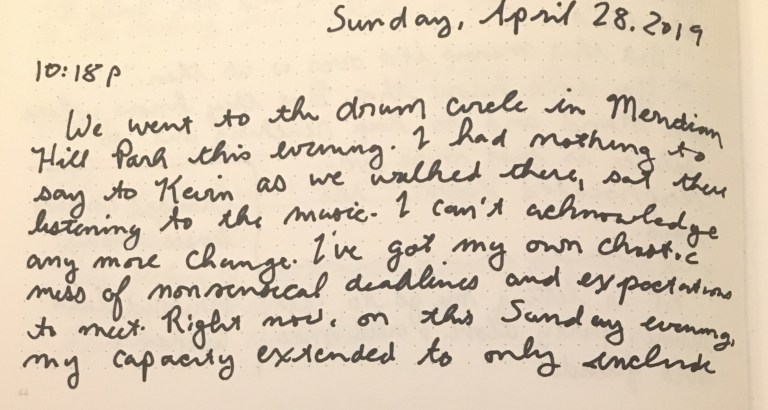 Sunday, April 28. 2019
10:18p
We went to the drum circle in Meridian
Hill Park this evening. I had nothing to
say to Kevin as we walked there, sat there
listening to the music. I can't acknowledge
any more change. I've got my own chaotic
mess of nonsensical deadlines and expectations
to meet. Right now, on this Sunday evening,
my capacity extended to only include